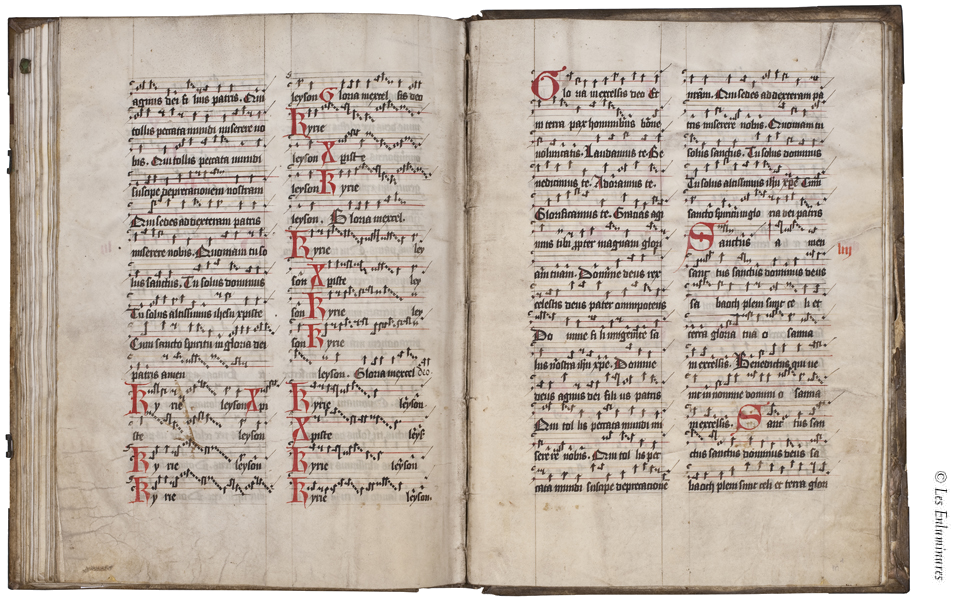 agnus dei fi lius patris. Qui
tollis peccata mundi miserere no
bis. Qui tollis peccata mundi
suscipe deprecationem nostram
Qui sedes ad dexteram patris
miserere nobis. Quoniam tu so
lus sanctus. Tu solus dominus
Tu solus altissimus ihesu xpiste
Cum sancto spiritu in gloria dei
patris amen
Ky rie leyson Xpi
ste leyson
Ky rie leyson
Ky rie
leyson Gloria in excel sis deo
Kyrie
leyson Xpiste
leyson Kyrie
leyson. Gloria in excel.
Kyrie ley
son Xpiste ley
son Kyrie ley
son Kyrie
leyson. Gloria in excel deo
Kyrie leyson.
Xpiste leys
Kyrie leyson.
Kyrie leyson.
Glo ria in excelsis deo Et
in terra pax hominibus bone
voluntatis. Laudamus te. Be
nedicimus te. Adoramus te.
Glorificamus te. Gracias agi
mus tibi propter magnam glori
am tuam. Domine deus rex
celestis deus pater omnipotens
Do mine fi li unigenite
deus agnus dei fili us patris
Qui tol lis peccata mundi mi
serere nobis. Qui tol lis pec
cata mundi suscipe deprecacione
nostram. Qui sedes ad dexteram pa
tris miserere nobis. Quoniam tu
solus sanctus. Tu solus dominus
Tu solus altissimus ihu xpe Cum
sancto spiritu in glo ria dei patris
Sanctus a men
sanc tus sanctus dominus deus
sa baoth pleni sunt ce li et
terra gloria tua o sanna
in excelsis. Benedictus qui ve
nit in nomine domini o sanna
in excelsis. Sanc tus san
ctus sanctus dominus deus sa
baoth pleni sunt celi et terra glori
iiij
© Les Enluminures